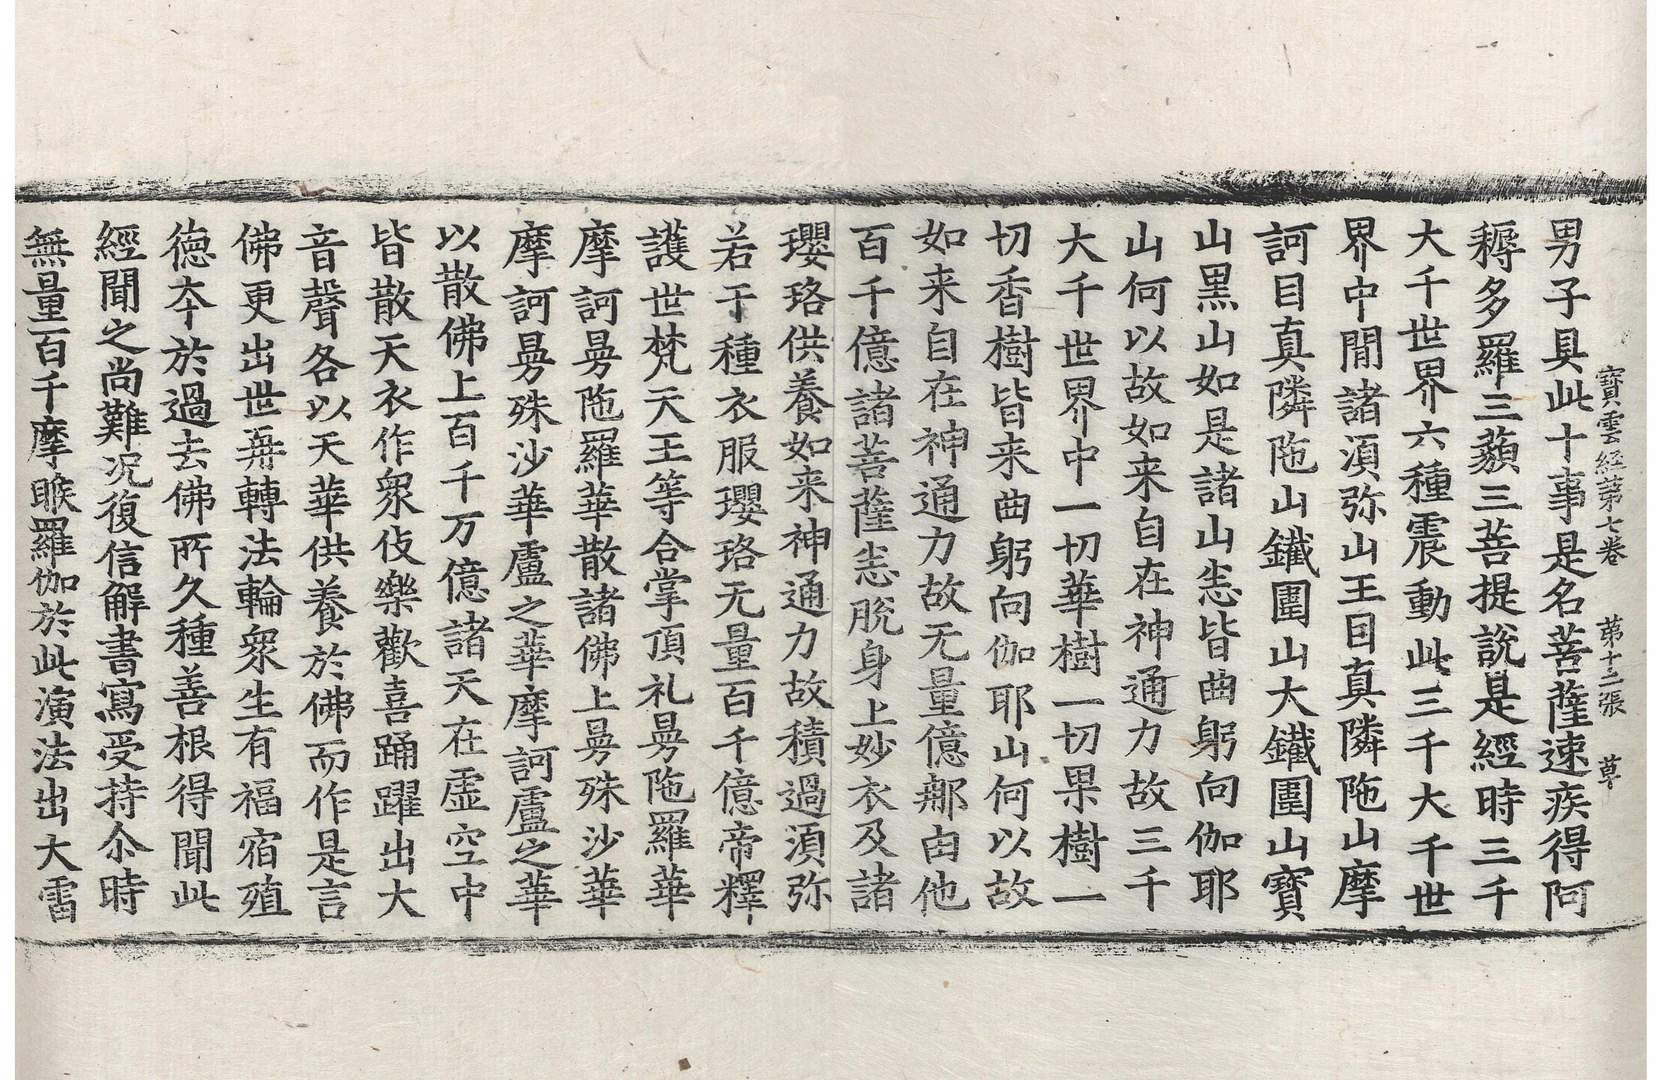 寶雲経苐七卷　苐十三張　草
男子具此十事是名菩薩速疾得阿
耨多羅三藐三菩提說是經時三千
大千世界六種震動此三千大千世
界中閒諸湏弥山王目真隣陁山摩
訶目真隣陁山鐵圍山大鐵圍山寶
山黒山如是諸山悉皆曲躬向伽耶
山何以故如来自在神通力故三千
大千世界中一切華樹一切果樹一
切香樹皆来曲躬向伽耶山何以故
如来自在神通力故无量億那由他
百千億諸菩薩悉脫身上妙衣及諸
瓔珞供養如来神通力故積過湏弥
若干種衣服瓔珞无量百千億帝釋
護世梵天王等合掌頂礼曼陁羅華
摩訶曼陁羅華散諸佛上曼殊沙華
摩訶曼殊沙華盧之華摩訶盧之華
以散佛上百千万億諸天在虛空中
皆散天衣作衆伎樂歡喜踊躍出大
音聲各以天華供養於佛而作是言
佛更出世再轉法輪衆生有福宿殖
德夲於過去佛所久種善根得聞此
經聞之尚難况復信解書寫受持尒時
無量百千摩睺羅伽於此演法出大雷